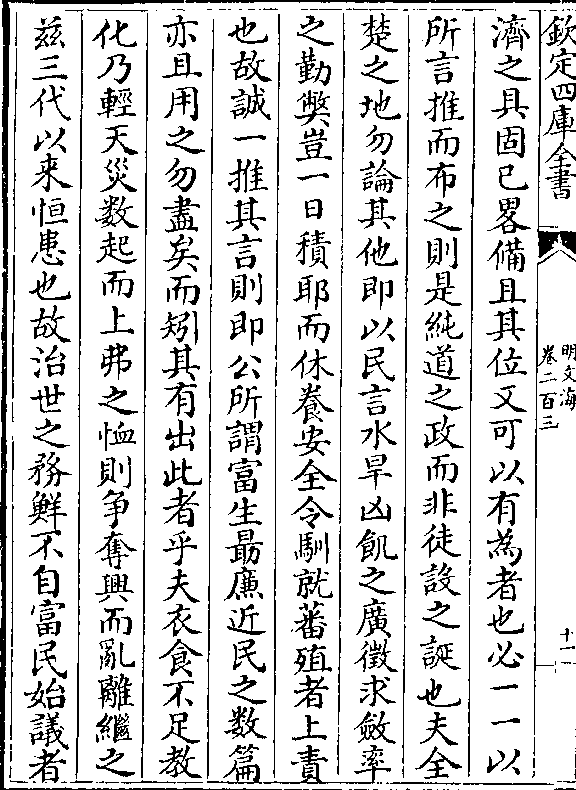 欽定四庫全書
明文海
卷二百三
十一
濟之具固已畧備且其位又可以有為者也必一一以
所言推而布之則是純道之政而非徒設之誕也夫全
楚之地勿論其他即以民言水旱凶飢之廣徵求斂率
之勤獘豈一日積耶而休養安全令馴就蕃殖者上責
也故誠一推其言則即公所謂富生最廉近民之数篇
亦且用之勿盡矣而矧其有出此者乎夫衣食不足教
化乃輕天災数起而上弗之恤則争奪興而亂離繼之
兹三代以来恒患也故治世之務鮮不自富民始議者